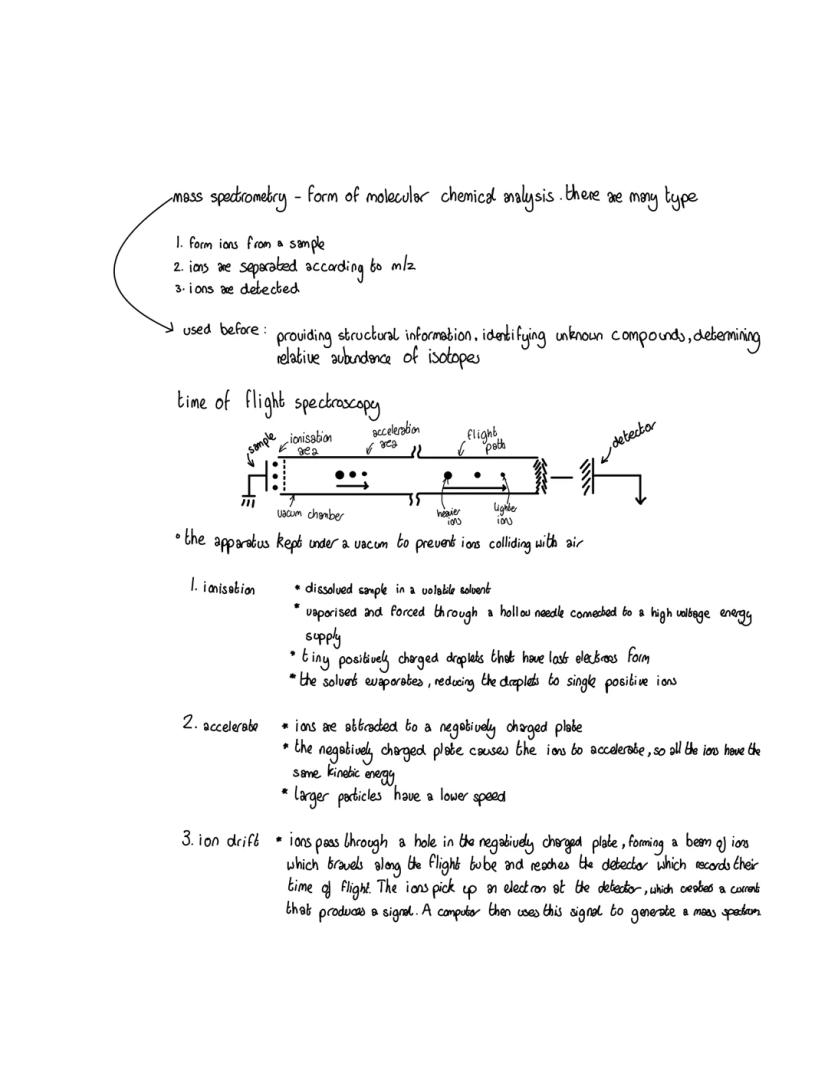 mass spectrometry - form of molecular chemical analysis. there are many type
1. form ions from a sample
2. ions are separated according to m/z
3. ions are detected
used before: providing structural information, identifying unknown compounds, determining
relative aubundance of isotopes
time of flight spectroscopy
sample
ionisation
area
acceleration
area
flight
path
detector
vacum chamber
heavier
ions
lighter
ions
• the apparatus kept under a vacum to prevent ions colliding with air
1. ionisation * dissolved sample in a volatile solvent
* vaporised and forced through a hollow needle connected to a high voltage energy
supply
* tiny positively charged droplets that have lost electrons form
* the solvent evaporates, reducing the droplets to single positive ions
2. accelerate * ions are attracted to a negatively charged plate
* the negatively charged plate causes the ions to accelerate, so all the ions have the
same kinetic energy
* larger particles have a lower speed
3. ion drift * ions pass through a hole in the negatively charged plate, forming a beam of ions
which travels along the flight tube and reaches the detector which records their
time of flight. The ions pick up an electron at the detector, which created a current
that produces a signal. A computer then uses this signal to generate a mass spectrum